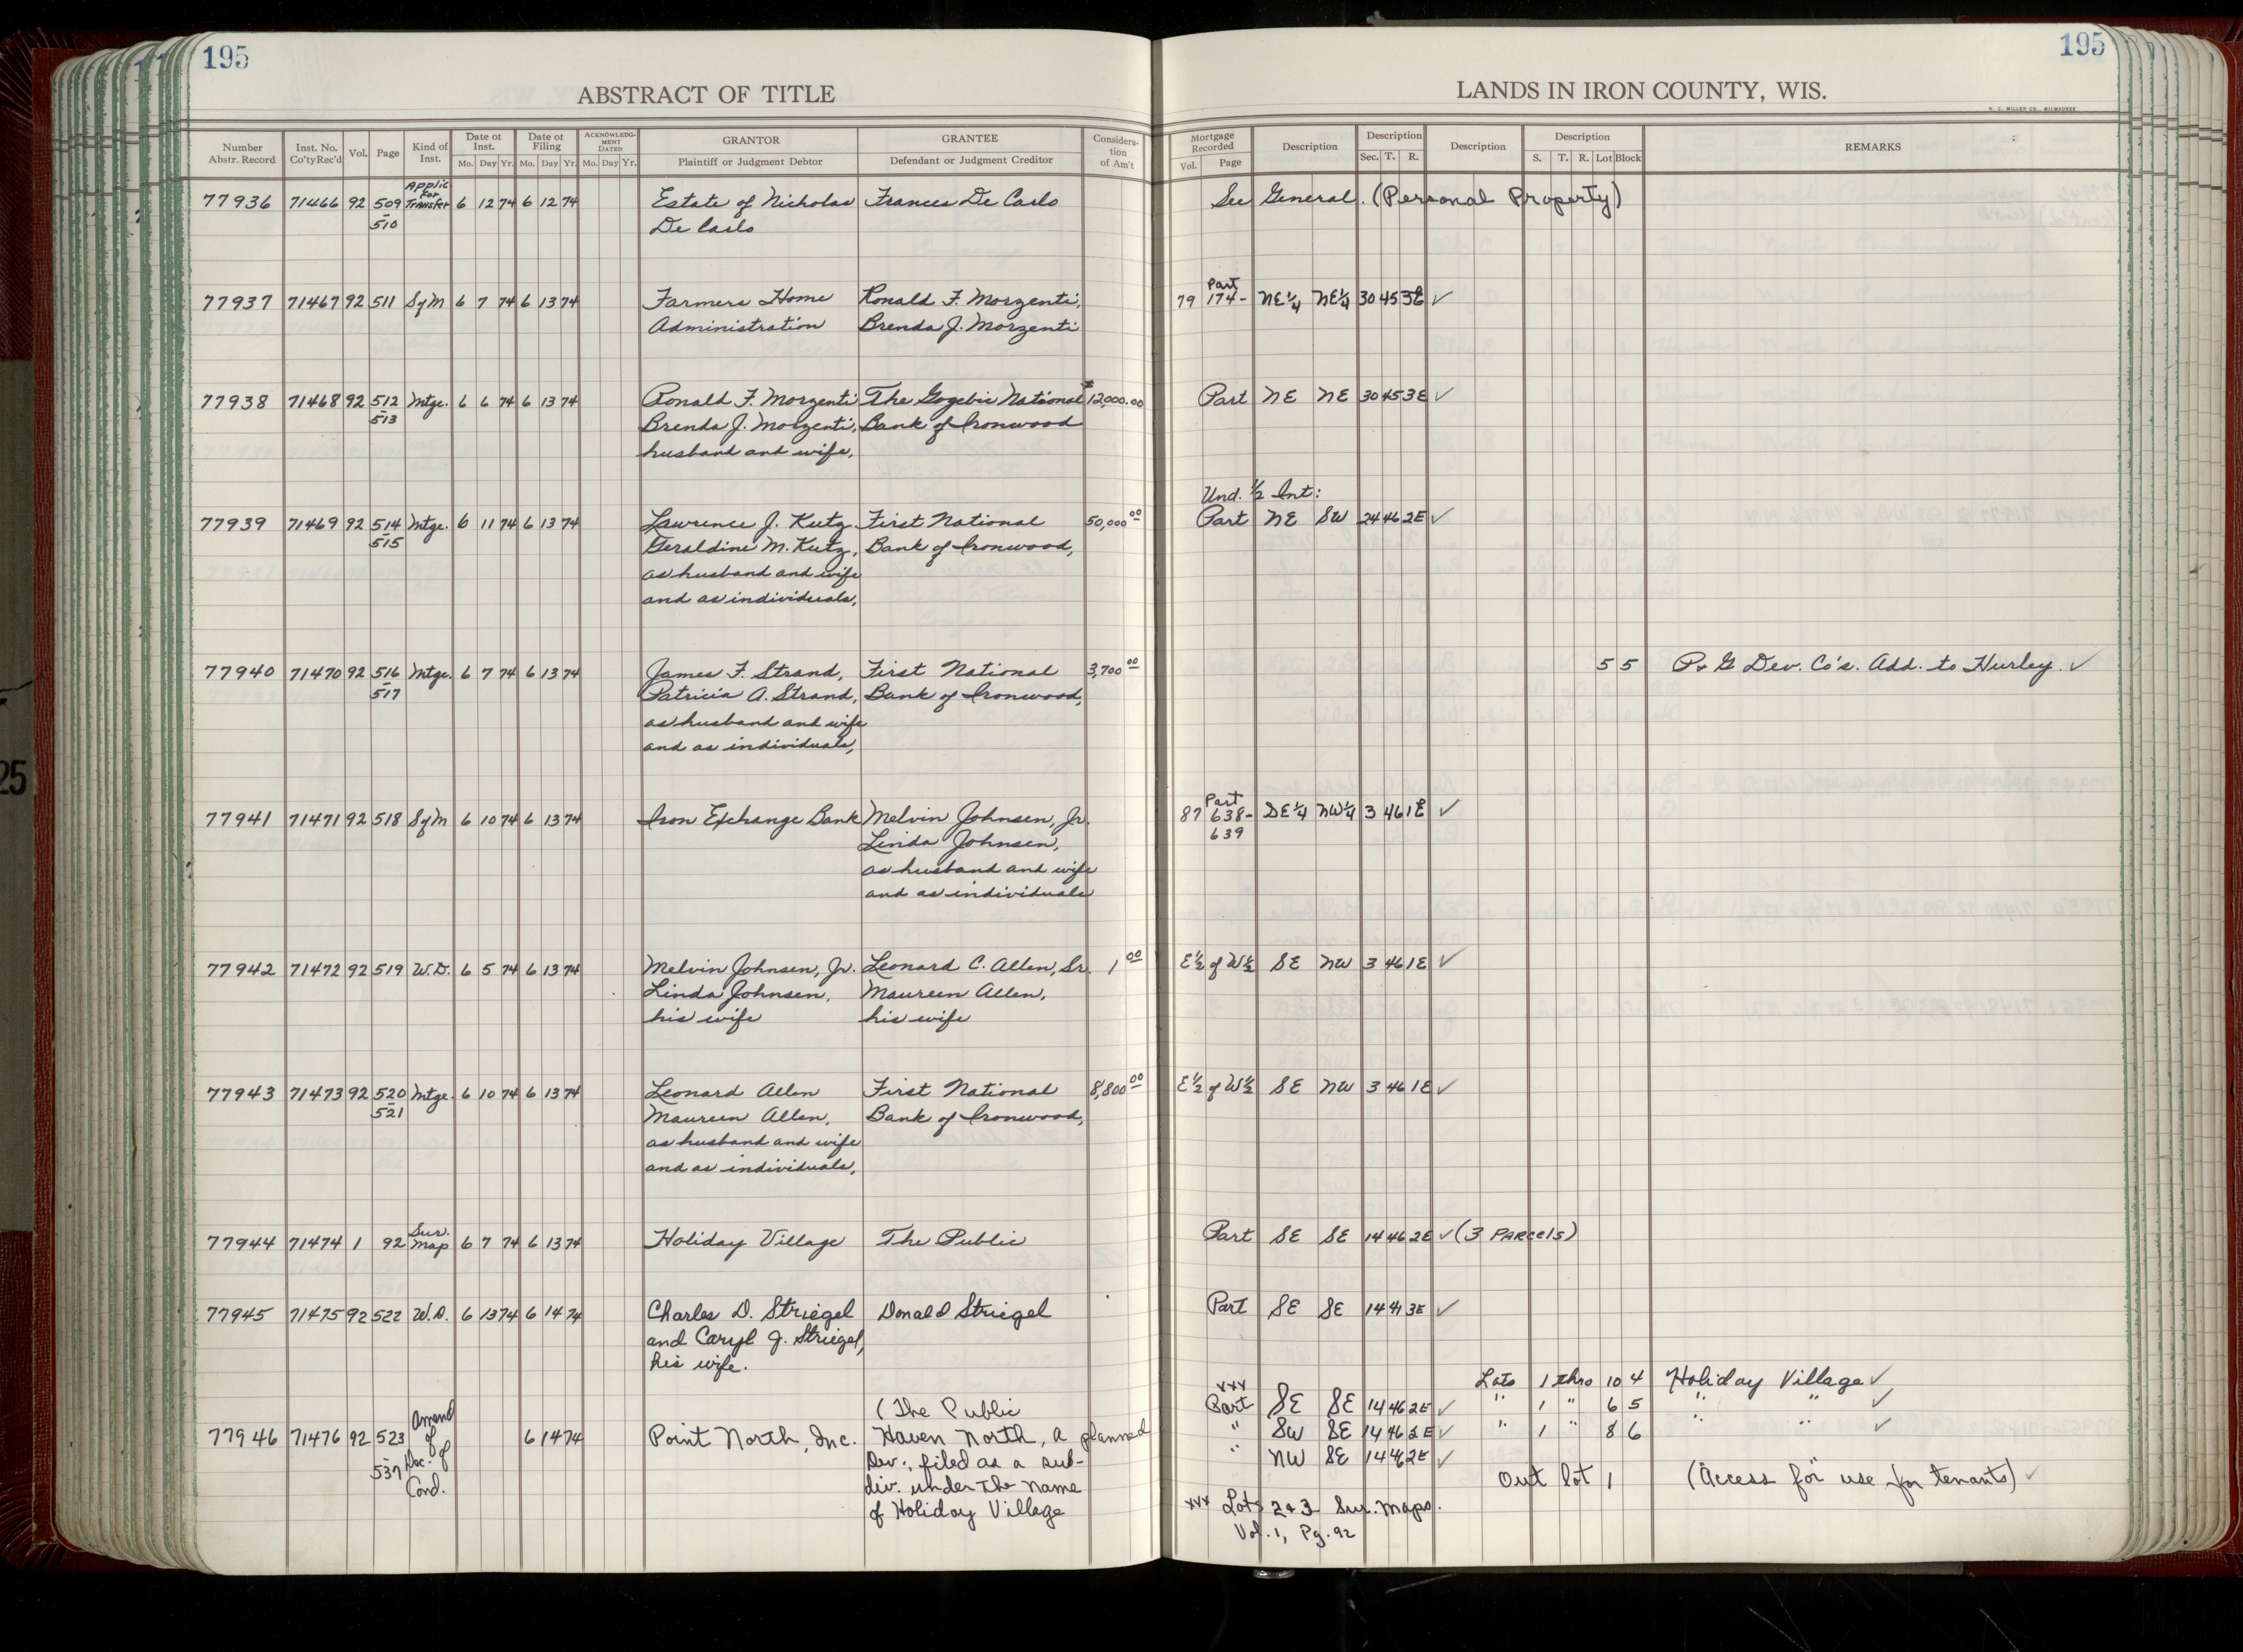 195
195
ABSTRACT OF TITLE
LANDS IN IRON COUNTY, WIS.
H. C. MILLER CO., MILWAUKEE
Number Abstr. Record | Inst. No. Co'ty Rec'd | Vol. | Page | Kind of Inst. | Date of Inst. Mo. Day Yr. | Date of Filing Mo. Day Yr. | ACKNOWLEDGMENT DATED Mo. Day Yr. | GRANTOR Plaintiff or Judgment Debtor | GRANTEE Defendant or Judgment Creditor | Consideration of Am't | Mortgage Recorded Vol. Page | Description | Description Sec. T. R. | Description | Description S. T. R. Lot Block | REMARKS
Applic For
77936 71466 92 509 Transfer 6 12 74 6 12 74 Estate of Nicholas Frances De Carlo See General. (Personal Property)
- 510 De Carlo
Part
77937 71467 92 511 S of M 6 7 74 6 13 74 Farmers Home Ronald F. Morzenti, 79 174- NE¼ NE¼ 30 45 3E ✓
Administration Brenda J. Morzenti
77938 71468 92 512 Mtge. 6 6 74 6 13 74 Ronald F. Morzenti The Gogebic National $12,000.00 Part NE NE 30 45 3E ✓
- 513 Brenda J. Morzenti, Bank of Ironwood
husband and wife,
Und. ½ Int:
77939 71469 92 514 Mtge. 6 11 74 6 13 74 Lawrence J. Kutz First National 50,000 00 Part NE SW 24 46 2E ✓
- 515 Geraldine M. Kutz, Bank of Ironwood,
as husband and wife
and as individuals,
77940 71470 92 516 Mtge. 6 7 74 6 13 74 James F. Strand, First National 3,700 00 5 5 P. & G Dev. Co's. Add. to Hurley. ✓
- 517 Patricia A. Strand, Bank of Ironwood,
as husband and wife
and as individuals,
Part
77941 71471 92 518 S of M 6 10 74 6 13 74 Iron Exchange Bank Melvin Johnsen, Jr. 87 638- SE¼ NW¼ 3 46 1E ✓
Linda Johnsen, 639
as husband and wife
and as individuals
77942 71472 92 519 W.D. 6 5 74 6 13 74 Melvin Johnsen, Jr. Leonard C. Allen, Sr. 1 00 E½ of W½ SE NW 3 46 1E ✓
Linda Johnsen, Maureen Allen,
his wife his wife
77943 71473 92 520 Mtge. 6 10 74 6 13 74 Leonard Allen First National 8,800 00 E½ of W½ SE NW 3 46 1E ✓
- 521 Maureen Allen, Bank of Ironwood,
as husband and wife
and as individuals,
Sur.
77944 71474 1 92 Map 6 7 74 6 13 74 Holiday Village The Public Part SE SE 14 46 2E ✓ (3 Parcels)
77945 71475 92 522 W.D. 6 13 74 6 14 74 Charles D. Striegel Donald Striegel Part SE SE 14 41 3E ✓
and Caryl J. Striegel,
his wife.
Lots 1 thro 10 4 Holiday Village ✓
xxx
Amend (The Public Part SE SE 14 46 2E ✓ " 1 " 6 5 " " ✓
77946 71476 92 523 of 6 14 74 Point North, Inc. Haven North, a planned " SW SE 14 46 2E ✓ " 1 " 8 6 " " ✓
- 537 Dec. of Dev., filed as a sub- " NW SE 14 46 2E ✓
Cond. div. under The name Out lot 1 (Access for use for tenants) ✓
of Holiday Village xxx Lots 2 & 3 Sur. Maps.
Vol. 1, Pg. 92
25